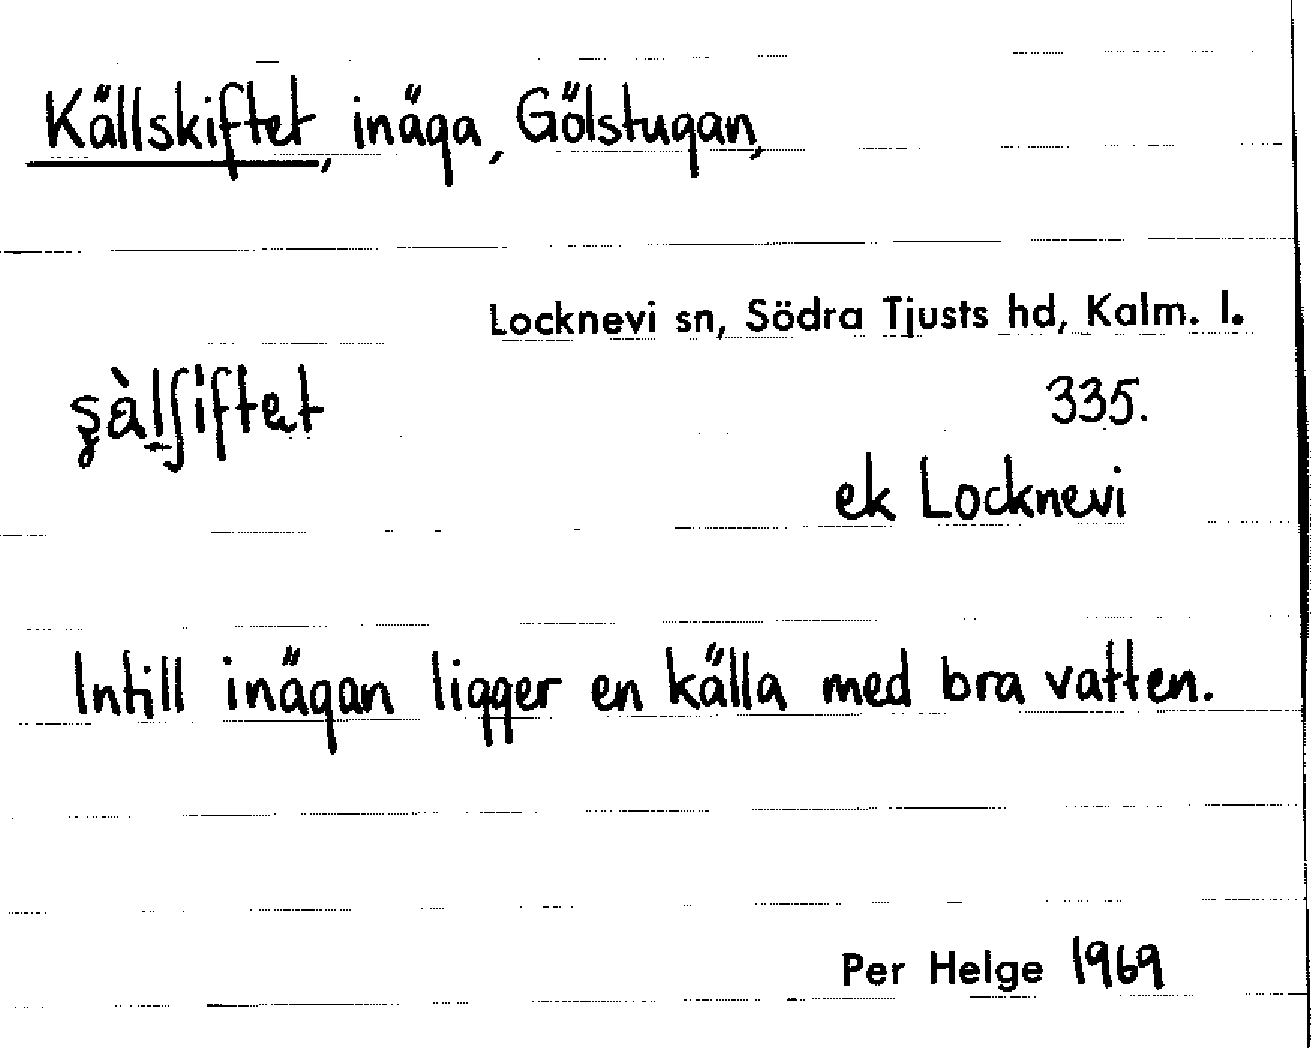 Källskiftet, inäga, Gölstugan,
Locknevi sn, Södra Tjusts hd, Kalm. l.
335.
ek Locknevi
Intill inägan ligger en källa med bra vatten.
Per Helge 1969